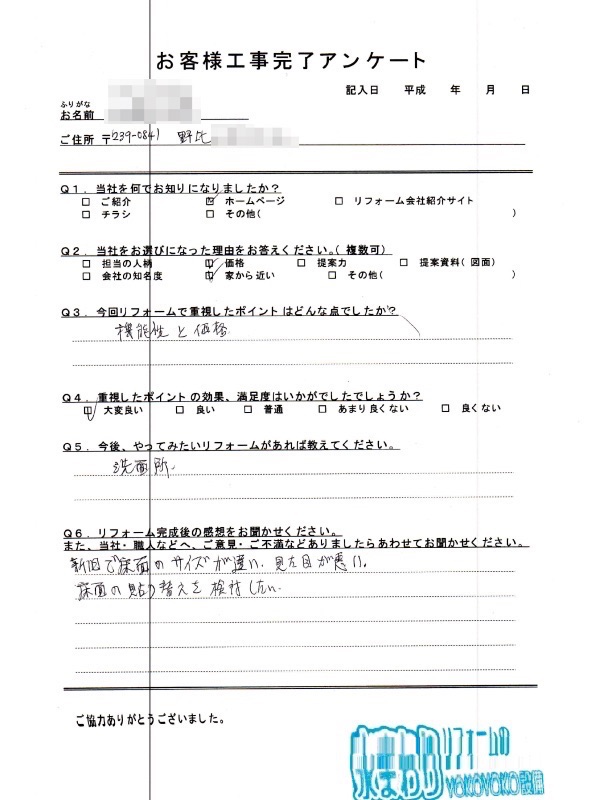 お客様工事完了アンケート
記入日　平成　年　月　日
ふりがな
お名前
ご住所 〒239-0841 野比
Q1. 当社を何でお知りになりましたか?
□ ご紹介 □ ホームページ □ リフォーム会社紹介サイト
□ チラシ □ その他( )
Q2. 当社をお選びになった理由をお答えください。( 複数可)
□ 担当の人柄 □ 価格 □ 提案力 □ 提案資料( 図面)
□ 会社の知名度 □ 家から近い □ その他( )
Q3. 今回リフォームで重視したポイントはどんな点でしたか?
機能性と価格
Q4. 重視したポイントの効果、満足度はいかがでしたでしょうか?
□ 大変良い □ 良い □ 普通 □ あまり良くない □ 良くない
Q5. 今後、やってみたいリフォームがあれば教えてください。
洗面所.
Q6. リフォーム完成後の感想をお聞かせください。
また、当社・職人などへ、ご意見・ご不満などありましたらあわせてお聞かせください。
新旧で床面のサイズが違い. 見た目が悪い.
床面の貼り替えを検討したい.
ご協力ありがとうございました。
水まわりリフォームの
YOKOYOKO設備